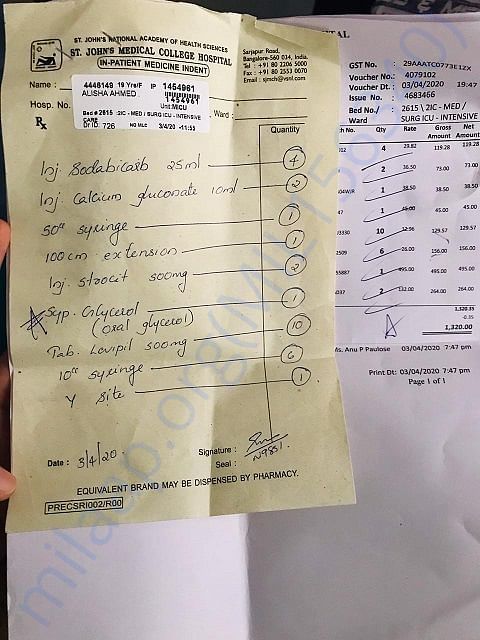 ST. JOHN'S NATIONAL ACADEMY OF HEALTH SCIENCES
ST. JOHN'S MEDICAL COLLEGE HOSPITAL
IN-PATIENT MEDICINE INDENT
Sarjapur Road,
Bangalore-560 034, India.
Tel : +91 80 2206 5000
Fax : +91 80 2553 0070
Email : sjmch@vsnl.com
Name :
4448149 19 Yrs/F IP 1454961
ALISHA AHMED
1454961
Unit:MICU
Hosp. No.
Bed # 2615 :2IC - MED / SURG ICU - INTENSIVE
CARE
Ward :
Dr ID: 726 NO MLC 3/4/20 -11:55
Rx
Quantity
Inj Sodabicarb 25ml 4
Inj. Calcium gluconate 10ml 2
50cc syringe 1
100 cm extension 1
Inj. Strocit 500mg 2
Syp. Glycerol 1
(oral glycerol)
Tab. Levipil 500mg 10
10cc syringe 6
Y site 1
Date : 3/4/20.
Signature :
Seal : N9851
EQUIVALENT BRAND MAY BE DISPENSED BY PHARMACY.
PRECSRI002/R00
GST No. 29AAATC0773E1ZX
Voucher No.: 4079102
Voucher Dt. : 03/04/2020 19:47
Issue No. : 4683466
Bed No./ : 2615 \ 2IC - MED /
Ward SURG ICU - INTENSIVE
Qty Rate Gross Amount Net Amount
4 29.82 119.28 119.28
2 36.50 73.00 73.00
1 38.50 38.50 38.50
1 45.00 45.00 45.00
10 12.96 129.57 129.57
6 26.00 156.00 156.00
1 495.00 495.00 495.00
2 132.00 264.00 264.00
1,320.35
-0.35
1,320.00
Ms. Anu P Paulose 03/04/2020 7:47 pm
Print Dt: 03/04/2020 7:47 pm
Page 1 of 1